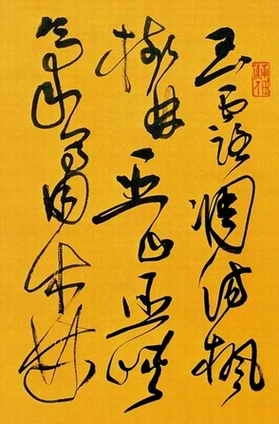 玉露凋傷楓
樹林巫山巫峽
氣蕭森